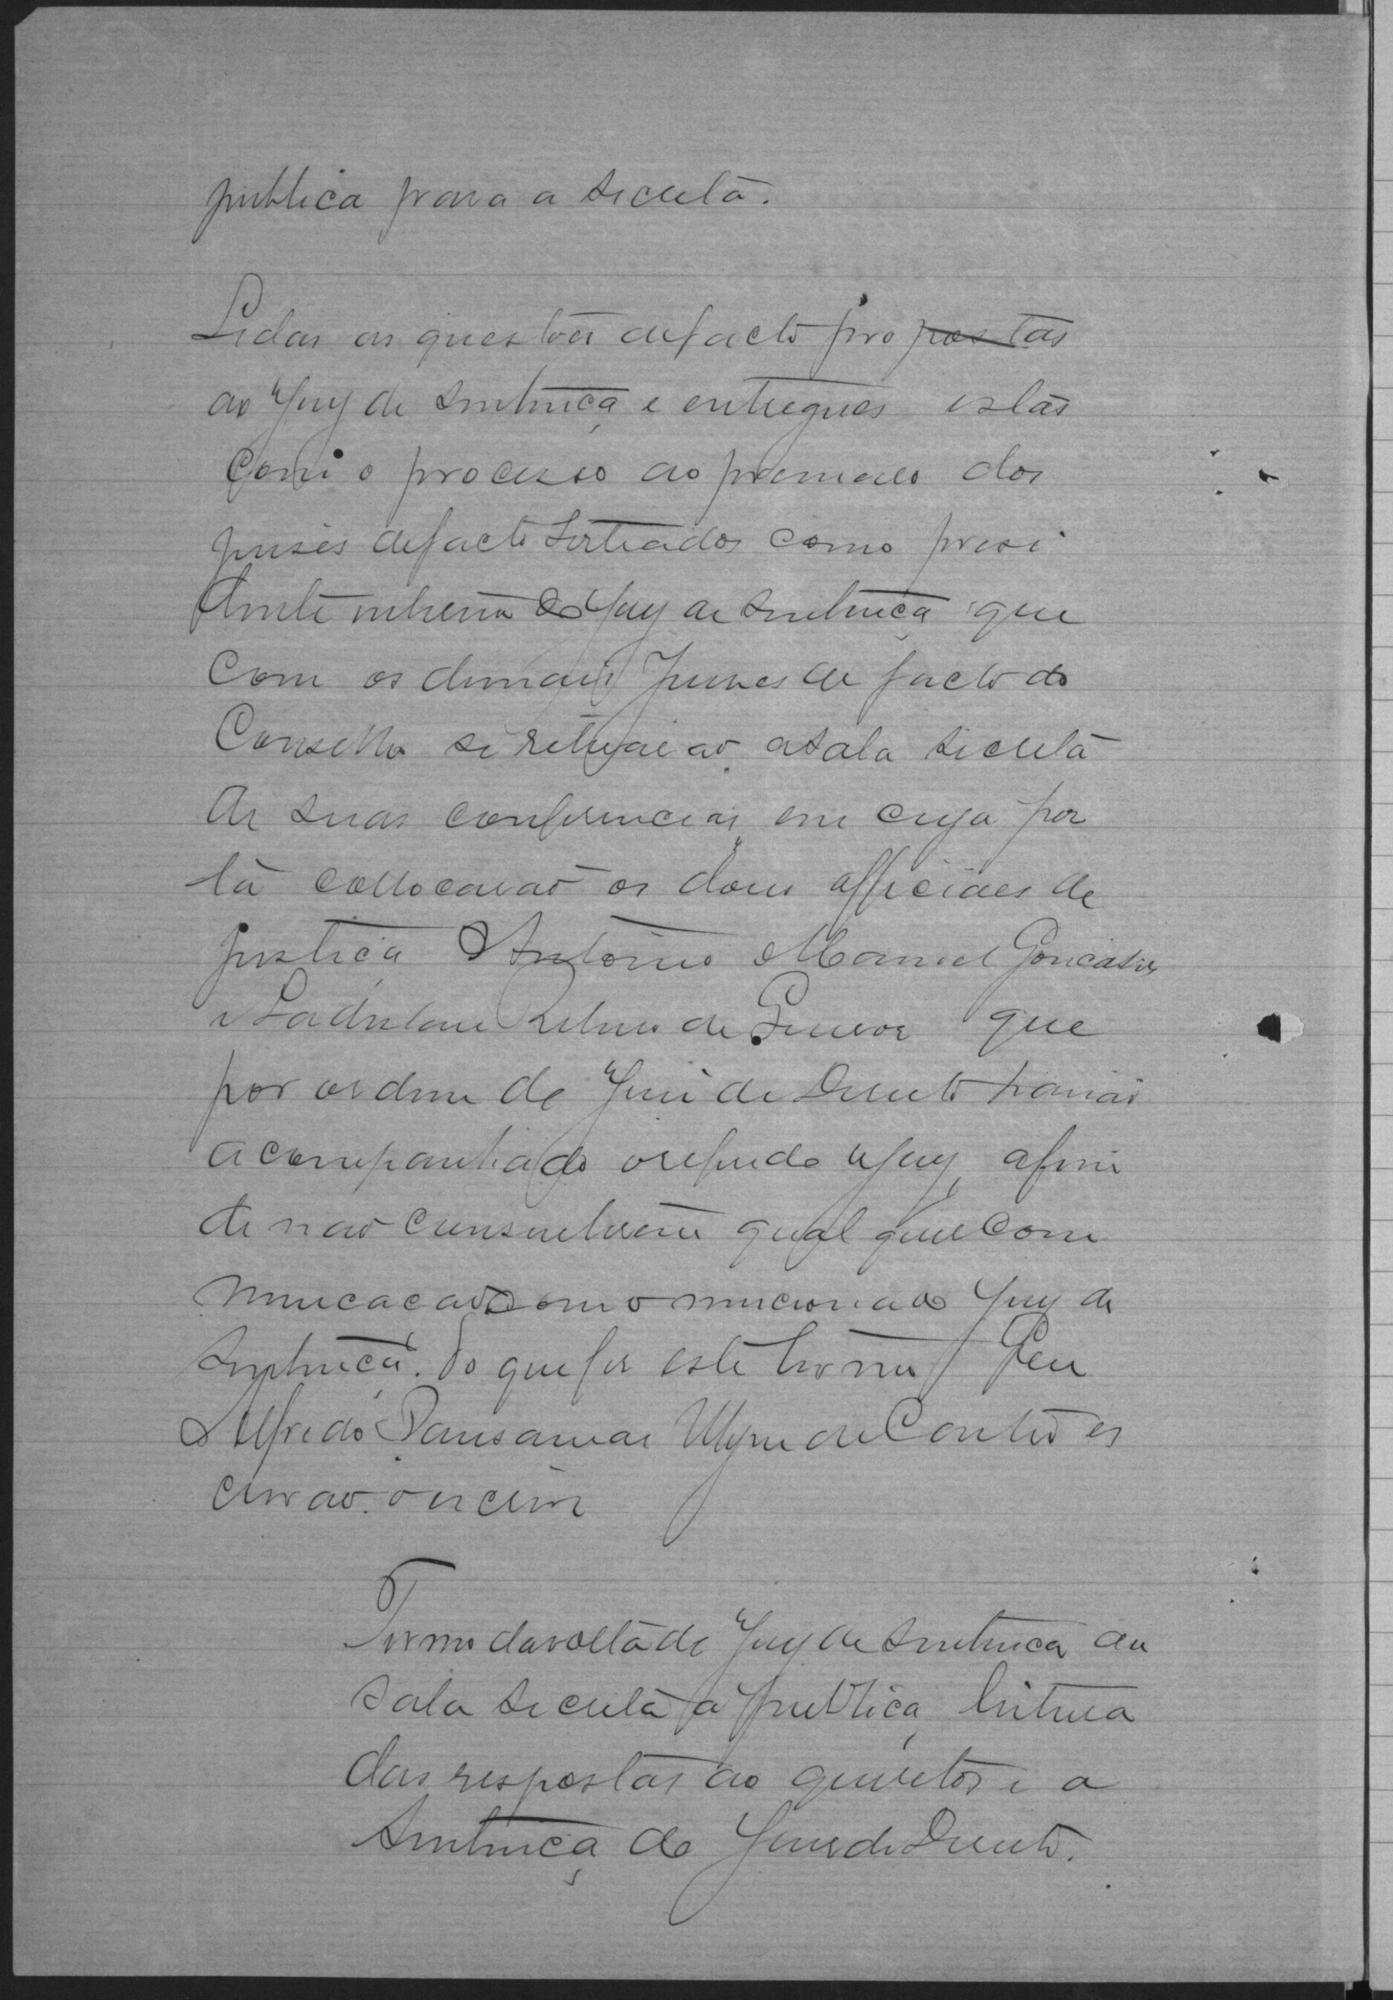 publica para a secreta.
Lidas as questões de facto propostas
ao Jury de Sentença e entregues estas
com o processo ao primeiro dos
juises de facto sorteados como presi
dente interino do Jury de Sentença que
com os demais Juises de facto do
Conselho se retirarão a sala secreta
de suas conferencias, em cuja por
ta collocarão os dous officiaes de
justiça Antonio Manoel Goncalves
e Ladislau de que
por ordem do Juis de Direito havião
acompanhado o referido Jury, afim
de não consentirem qual quer com
municacão com o mencionado Jury de
Sentença. Do que fis este termo Eu
Alfredo de es
crivão. o escrevi
Termo da volta do Jury de Sentença da
sala secreta a publica, leitura
das respostas ao quesitos e a
Sentença do Juis de Direito.